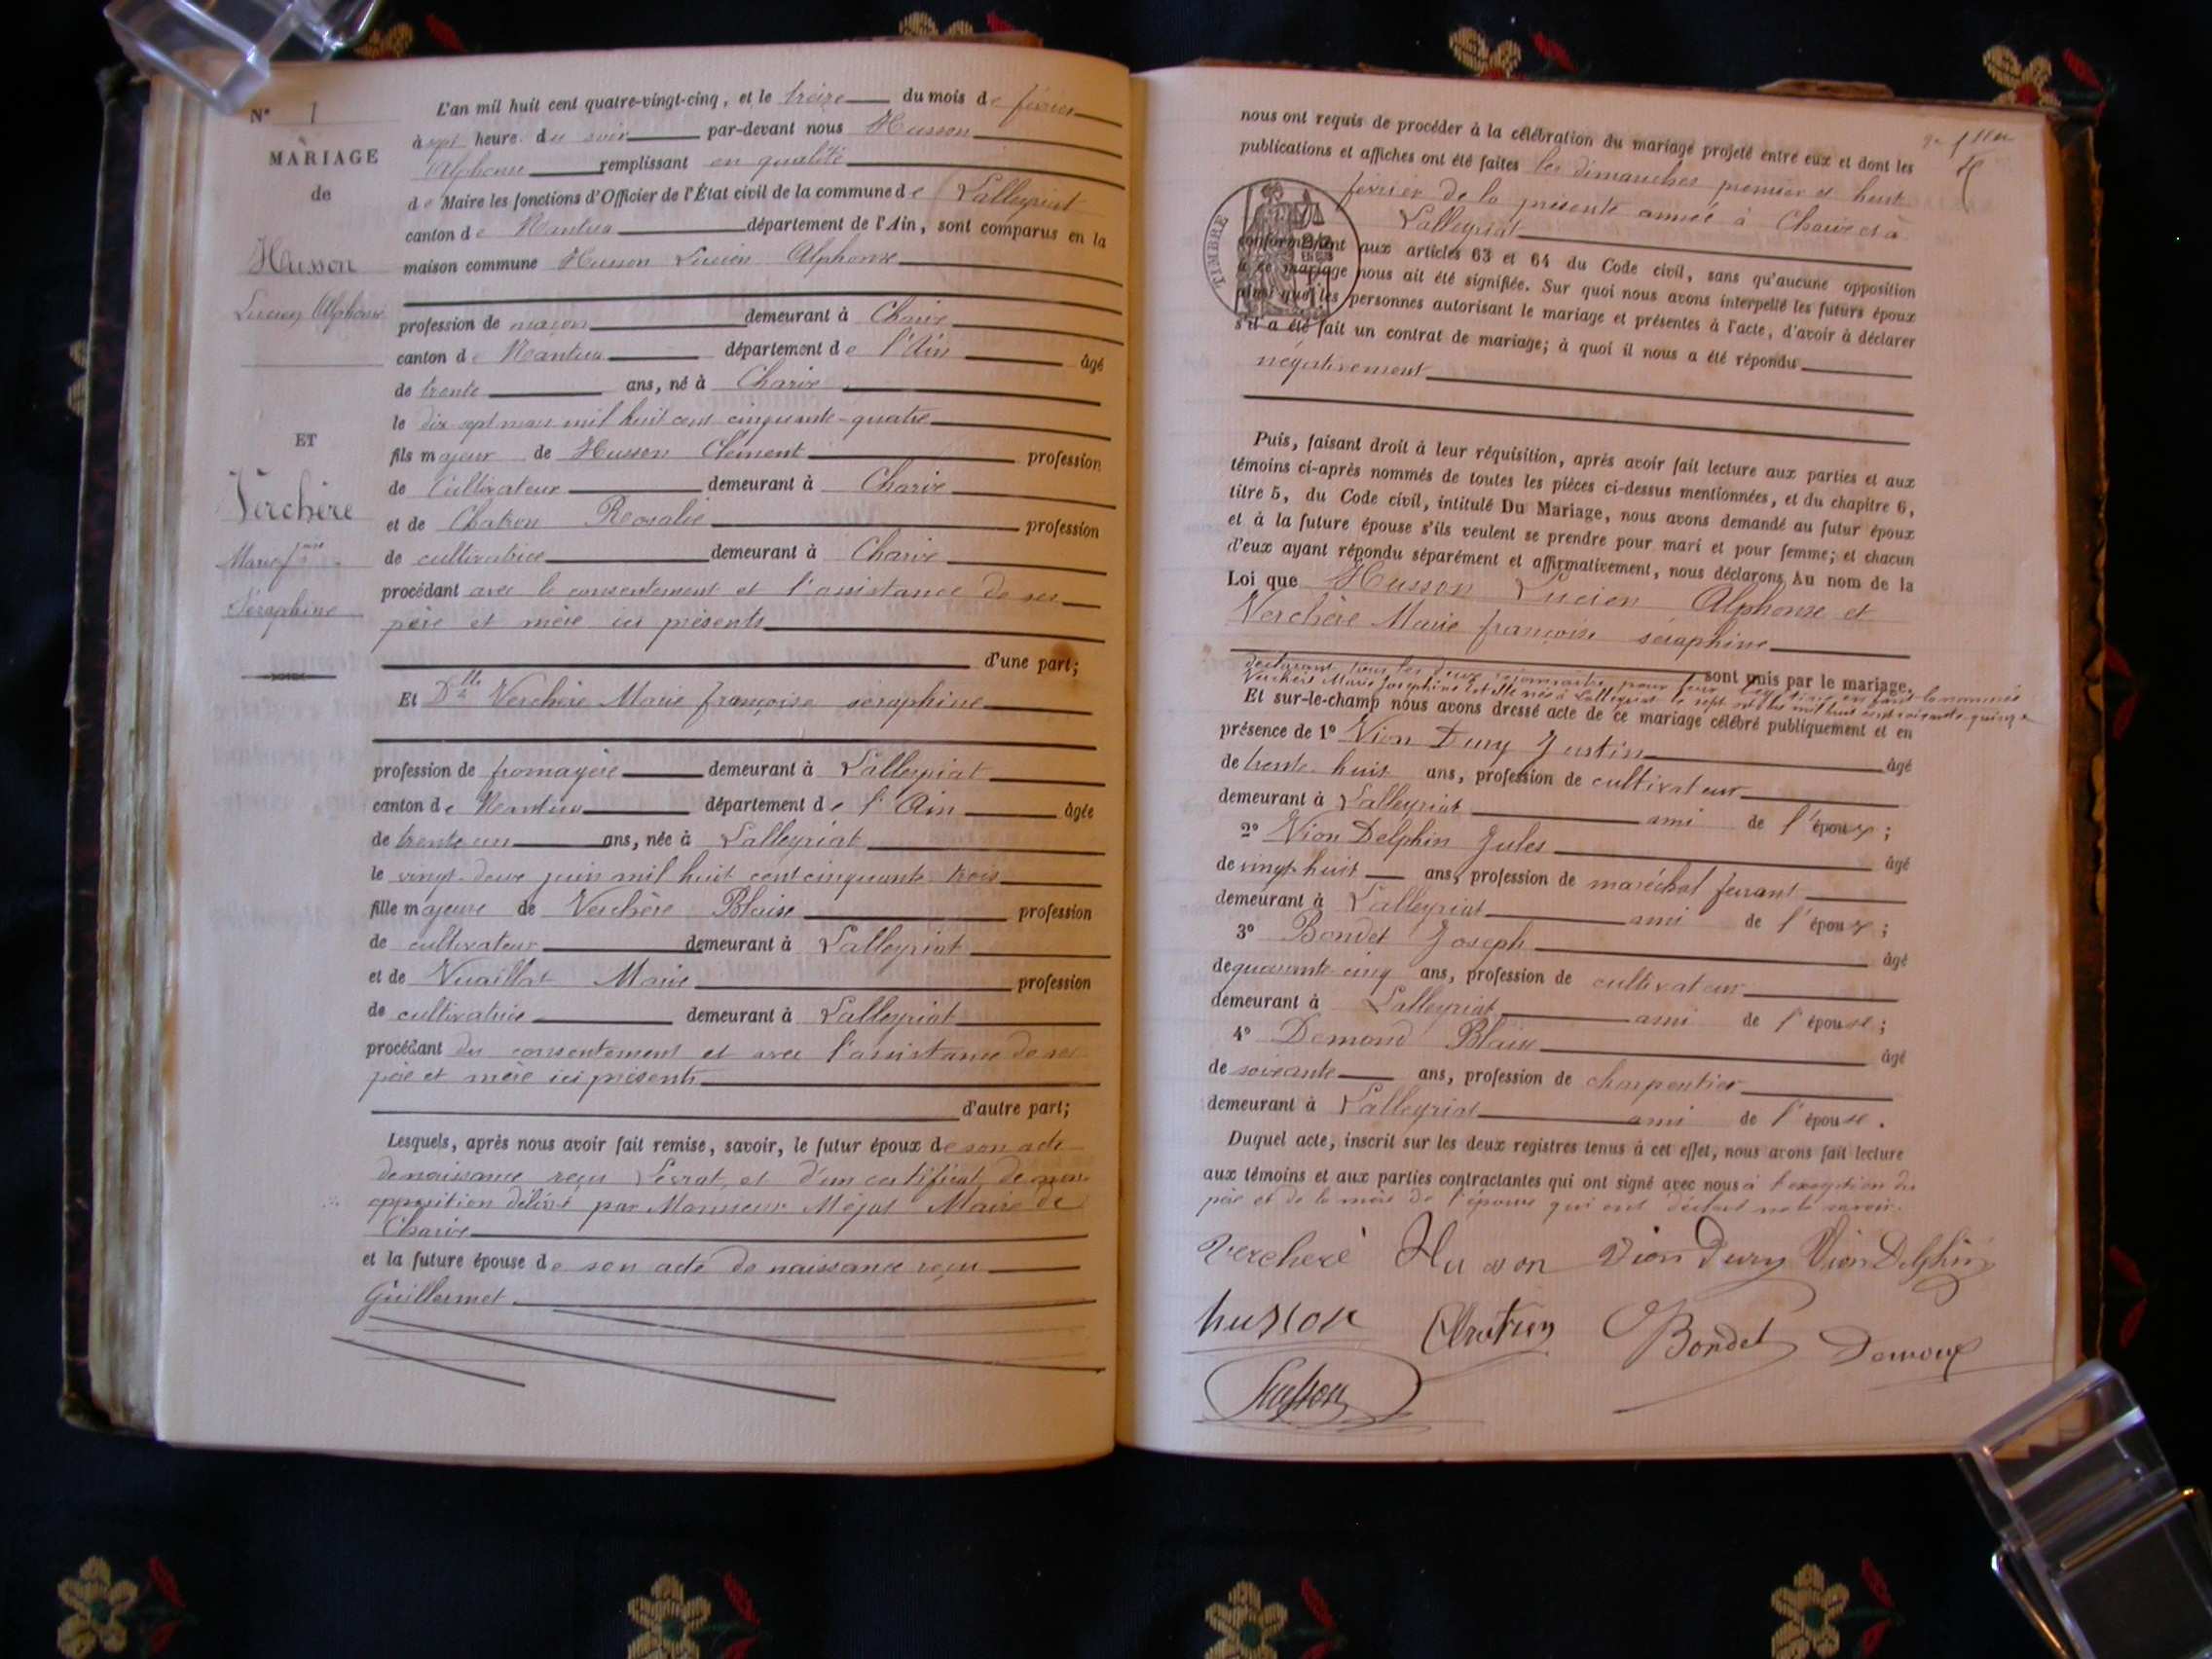 N° 1
MARIAGE
de
Husson
Lucien Alphonse
ET
Verchère
Marie fçoise
Séraphine
L'an mil huit cent quatre-vingt-cinq, et le treize du mois de février
à sept heure du soir par-devant nous Husson
Alphonse remplissant en qualité
de Maire les fonctions d'Officier de l'État civil de la commune de Lalleyriat
canton de Nantua département de l'Ain, sont comparus en la
maison commune Husson Lucien Alphonse
profession de maçon demeurant à Charix
canton de Nantua département de l'Ain âgé
de trente ans, né à Charix
le dix sept mars mil huit cent cinquante-quatre
fils majeur de Husson Clément profession
de Cultivateur demeurant à Charix
et de Chatron Rosalie profession
de cultivatrice demeurant à Charix
procédant avec le consentement et l'assistance de ses
père et mère ici présents
d'une part;
Et Dlle Verchère Marie françoise séraphine
profession de fromagère demeurant à Lalleyriat
canton de Nantua département de l'Ain âgée
de trente un ans, née à Lalleyriat
le vingt-deux juin mil huit cent cinquante trois
fille majeure de Verchère Blaise profession
de cultivateur demeurant à Lalleyriat
et de Vuaillat Marie profession
de cultivatrice demeurant à Lalleyriat
procédant du consentement et avec l'assistance de ses
père et mère ici présents
d'autre part;
Lesquels, après nous avoir fait remise, savoir, le futur époux de son acte
de naissance reçu Levrat, et d'un certificat de non
opposition délivré par Monsieur Méjat Maire de
Charix
et la future épouse de son acte de naissance reçu
Guillermet
nous ont requis de procéder à la célébration du mariage projeté entre eux et dont les
publications et affiches ont été faites les dimanches premier et huit
février de la présente année à Charix et à
Lalleyriat
TIMBRE
conformément aux articles 63 et 64 du Code civil, sans qu'aucune opposition
à ce mariage nous ait été signifiée. Sur quoi nous avons interpellé les futurs époux
ainsi que les personnes autorisant le mariage et présentes à l'acte, d'avoir à déclarer
s'il a été fait un contrat de mariage; à quoi il nous a été répondu
négativement
Puis, faisant droit à leur réquisition, après avoir fait lecture aux parties et aux
témoins ci-après nommés de toutes les pièces ci-dessus mentionnées, et du chapitre 6,
titre 5, du Code civil, intitulé Du Mariage, nous avons demandé au futur époux
et à la future épouse s'ils veulent se prendre pour mari et pour femme; et chacun
d'eux ayant répondu séparément et affirmativement, nous déclarons Au nom de la
Loi que Husson Lucien Alphonse et
Verchère Marie françoise séraphine
sont unis par le mariage.
déclarant tous les deux reconnaître pour leur légitime enfant la nommée
Verchère Marie Joséphine née à Lalleyriat le sept mil huit cent soixante-quinze
Et sur-le-champ nous avons dressé acte de ce mariage célébré publiquement et en
présence de 1° Vion Dury Justin âgé
de trente-huit ans, profession de cultivateur
demeurant à Lalleyriat ami de l'époux;
2° Vion Delphin Jules âgé
de vingt-huit ans, profession de maréchal ferrant
demeurant à Lalleyriat ami de l'époux;
3° Bondet Joseph âgé
de quarante-cinq ans, profession de cultivateur
demeurant à Lalleyriat ami de l'épouse;
4° Demond Blaise âgé
de soixante ans, profession de charpentier
demeurant à Lalleyriat ami de l'épouse.
Duquel acte, inscrit sur les deux registres tenus à cet effet, nous avons fait lecture
aux témoins et aux parties contractantes qui ont signé avec nous à l'exception du
père et de la mère de l'épouse qui ont déclaré ne le savoir.
Vercheré Husson Vion Dury Vion Delphin
husson Chatron Bondet Demond
Husson